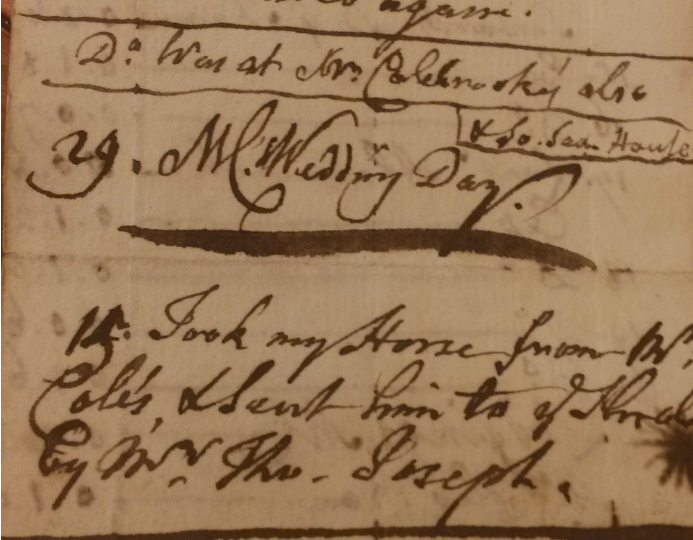 again.
Do. Was at Mrs. Colebrooky's also
& So. Sea. House
29. My Wedding Day.
14. Took my Horse from Mr.
Cole's, & Sent him to ye
By Mr. Tho. Joseph.